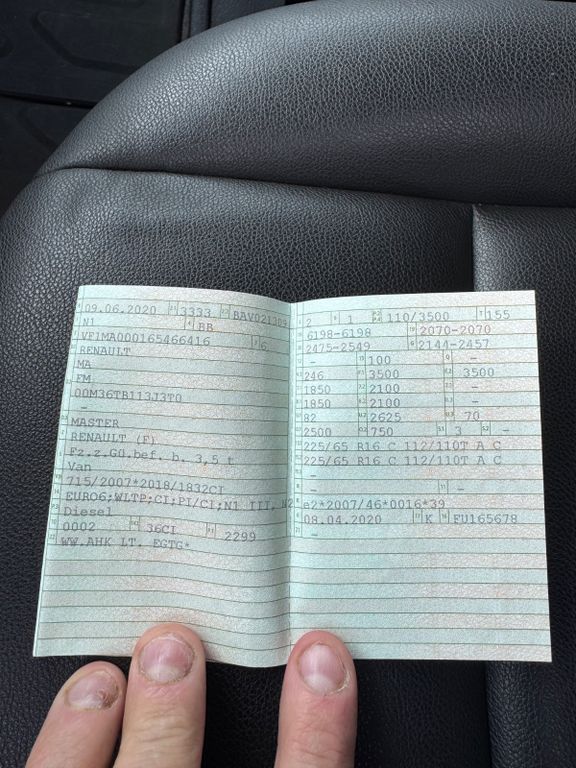 09.06.2020 3333 BAV021309
N1 BB
VF1MA000165466416 6
RENAULT
MA
FM
00M36TB113J3T0
-
MASTER
RENAULT (F)
Fz.z.Gü.bef. b. 3,5 t
Van
715/2007*2018/1832CI
EURO6;WLTP;CI;PI/CI;N1 III, N2
Diesel
0002 36CI 2299
WW.AHK LT. EGTG*
2 1 110/3500 155
6198-6198 2070-2070
2475-2549 2144-2457
- 100 -
246 3500 3500
1850 2100 -
1850 2100 -
82 2625 70
2500 750 3 -
225/65 R16 C 112/110T A C
225/65 R16 C 112/110T A C
-
- -
e2*2007/46*0016*39
08.04.2020 K FU165678
-